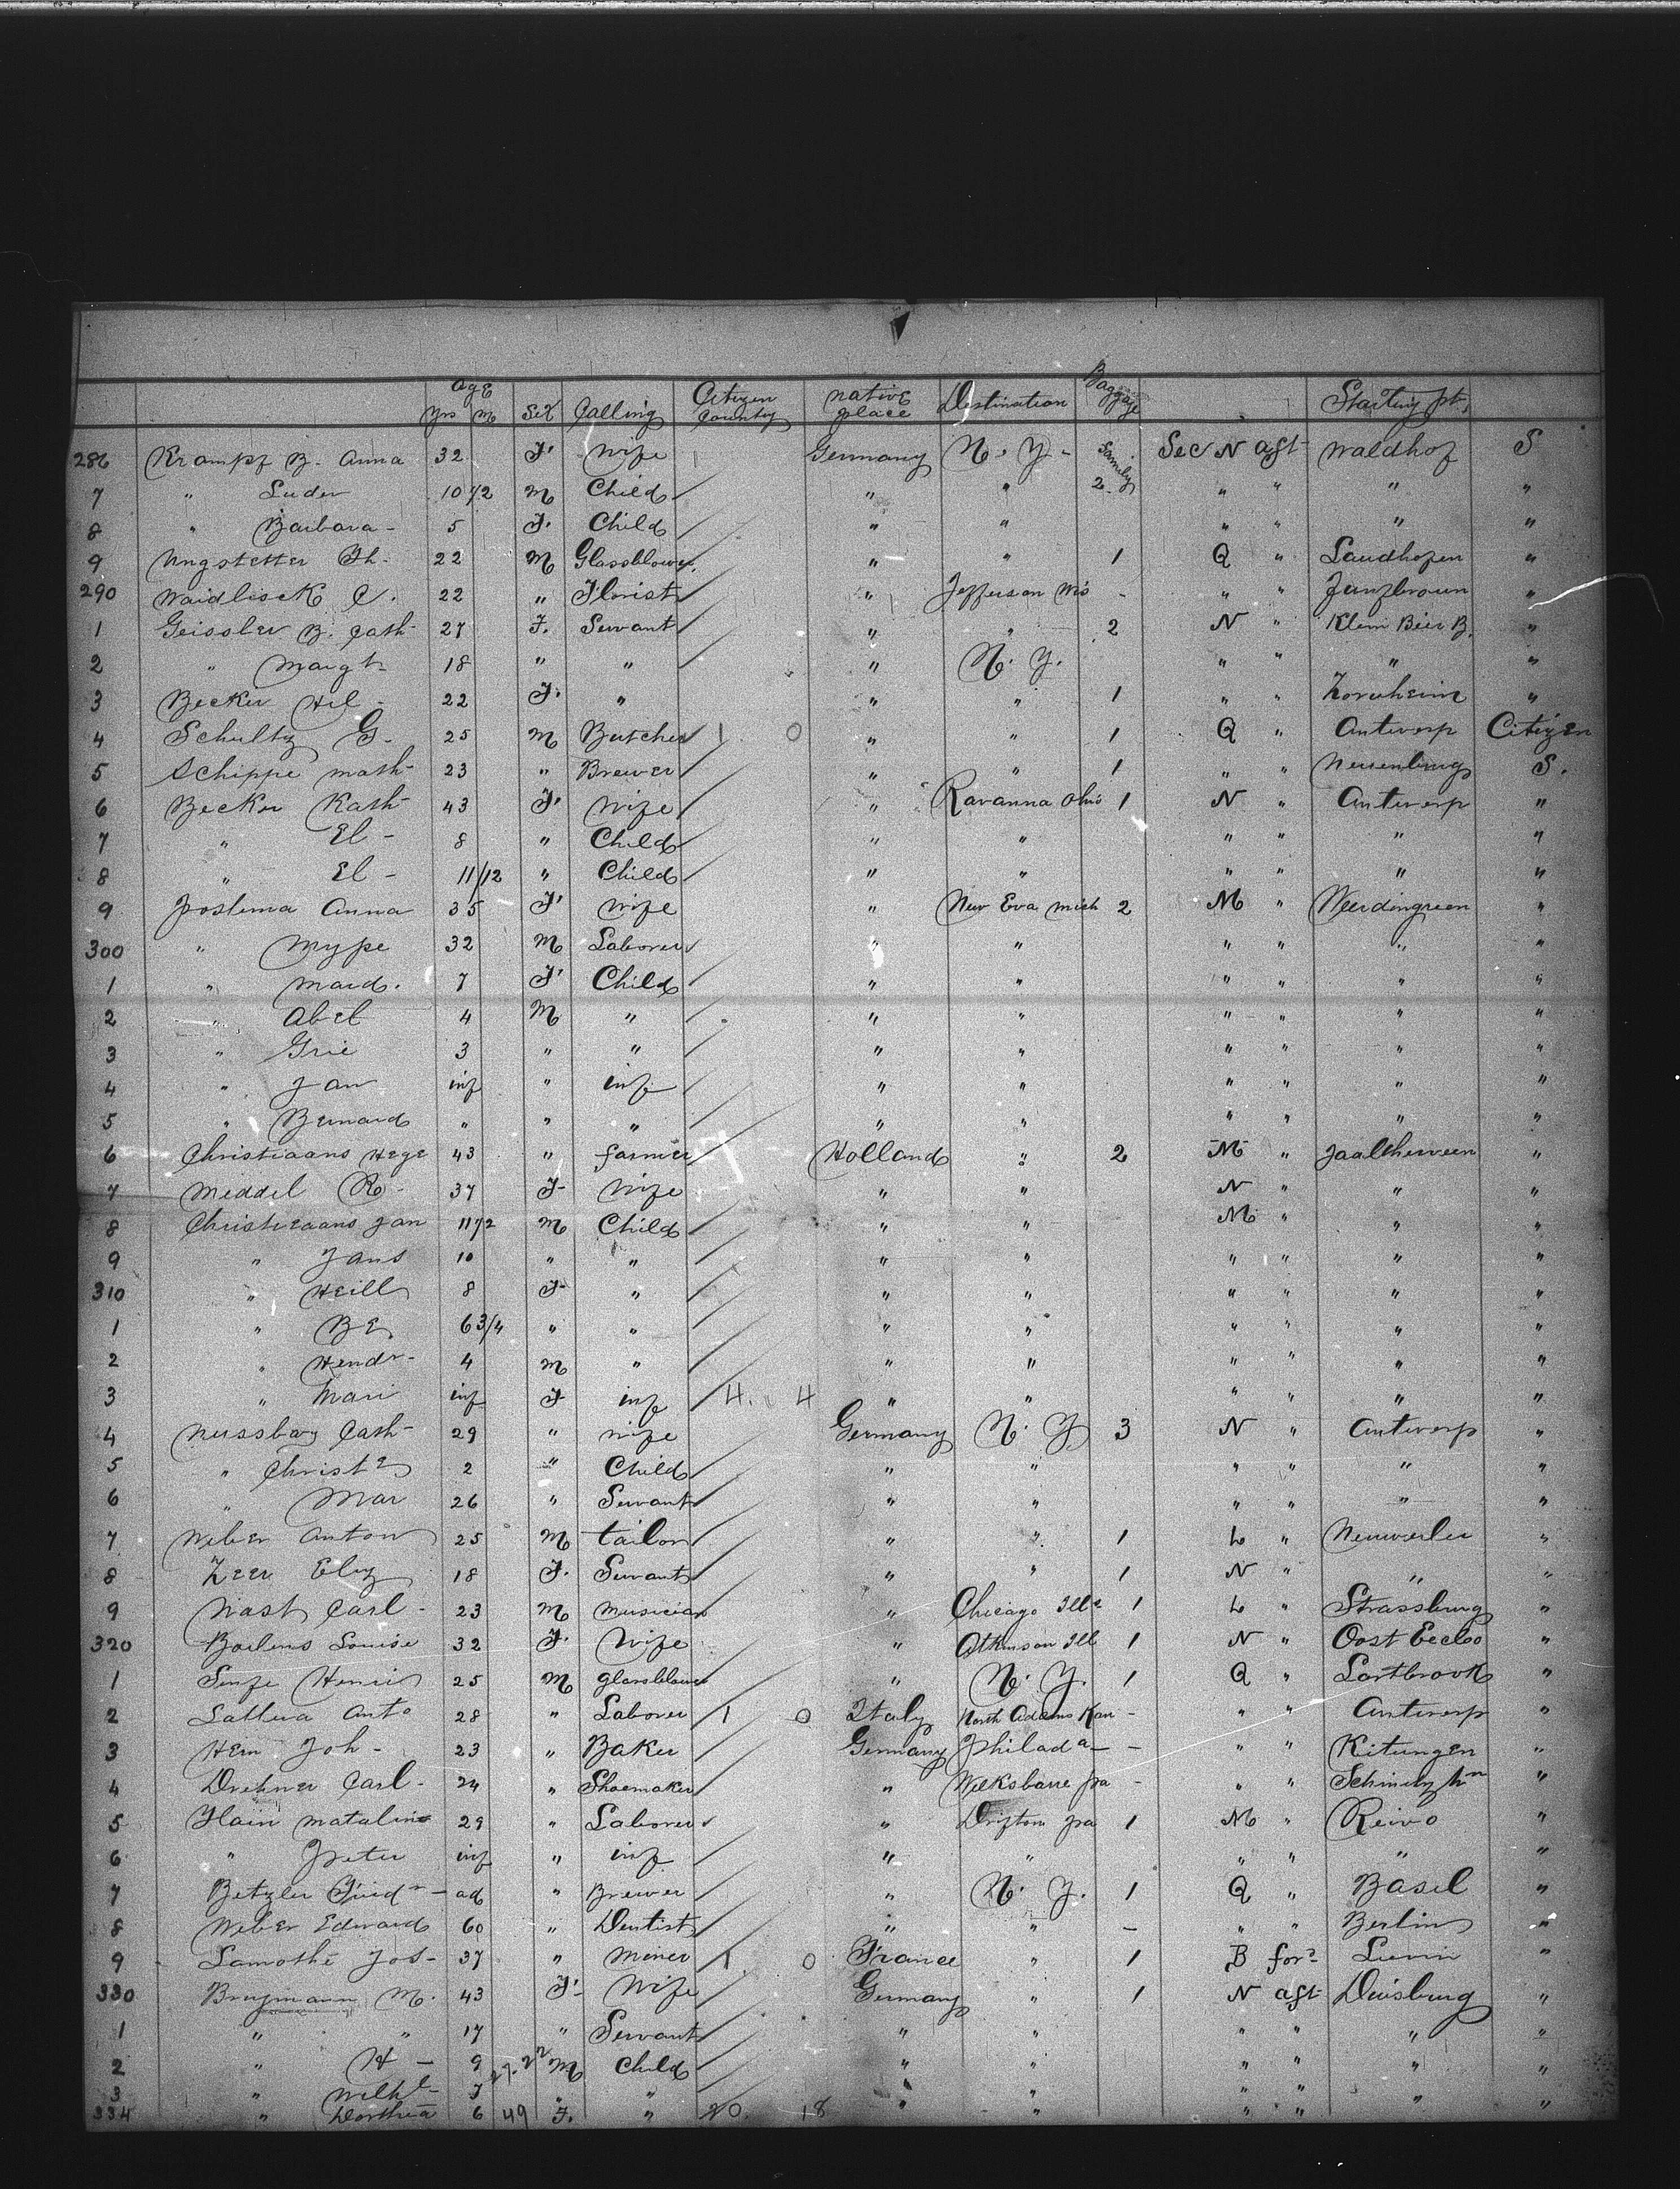 Age Yrs M Sex Calling Citizen County native place Destination Baggage Starting pt,
286 Krampf B. Anna 32 F. Wife Germany N. Y. Family 2 Sec N aft Waldhof S
7 " Luder 10 1/2 M Child " " " " " "
8 " Barbara 5 F. Child " " " " " "
9 Ungstetter Th. 22 M Glassblower " " 1 Q " Laudhofen "
290 Waidliseck C. 22 " Florist " Jefferson Wis - " " "
1 Geissler B. Cath 27 F. Servant " " 2 N " Klein Bier B. "
2 " Margt 18 " " " N. Y. " " " "
3 Becker Hel 22 F. " " " 1 " " Zornheim "
4 Schultz G. 25 M Butcher 1 0 " " 1 Q " Antwerp Citizen
5 Schippe Math 23 " Brewer " " 1 " " Neuenburg S.
6 Becker Kath 43 F. Wife " Ravanna Ohio 1 N " Antwerp "
7 " El - 8 " Child " " " " " "
8 " El - 11/12 " Child " " " " " "
9 Postema Anna 35 F. Wife " New Era Mich 2 M " "
300 " Wype 32 M Laborer " " " " " "
1 " Maid. 7 F. Child " " " " " "
2 " Abel 4 M " " " " " " "
3 " Grie 3 " " " " " " " "
4 " Jan inf " inf " " " " " "
5 " Bernard " " " " " " " " "
6 Christiaans Hege 43 " farmer Holland " 2 M " "
7 Meddel R. 37 F Wife " " N " " "
8 Christiaans Jan 11 1/2 M Child " " M " " "
9 " Jans 10 " " " " " " " "
310 " Heill 8 F " " " " " " "
1 " BE 6 3/4 " " " " " " " "
2 " Hendr 4 M " " " " " " "
3 " Mari inf F inf 4. 4 " " " " " "
4 Cath 29 " Wife Germany N. Y 3 N " Antwerp "
5 " Christ 2 " Child " " " " " "
6 " Mar 26 " Servant " " " " " "
7 Weber Anton 25 M tailor " " 1 L " Neuweiler "
8 Zeer Eliz 18 F. Servant " " 1 N " " "
9 Wast Carl 23 M Musician " Chicago Ills 1 L " Strassburg "
320 Louise 32 F. Wife " Atkinson Ill 1 N " Oost Eecloo "
1 Henri 25 M glassblower " N. Y. 1 Q " "
2 Anto 28 " Laborer 1 0 Italy North Adams Kan - " " Antwerp "
3 Hern Joh - 23 " Baker Germany Philada - " " Kitungen "
4 Drehner Carl - 24 " Shoemaker " Wilksbarre Pa - " " "
5 Hain Mataline 29 " Laborer " Drifton Pa 1 M " Reivo "
6 " Peter inf " inf " " " " " "
7 Betzler Frid - ad " Brewer " N. Y. 1 Q " Basel "
8 Weber Edward 60 " Dentist " " - " " Berlin "
9 Lamothe Jos - 37 " Miner 1 0 France " 1 B for "
330 Brugmann M. 43 F. Wife Germany " 1 N aft Duisburg "
1 " " 17 " Servant " " " " " "
2 " H - 9 27.22 M Child " " " " " "
3 " Wilhl 7 " " " " " " " "
334 " Dorthea 6 49 F. " 20. 18 " " " " " "